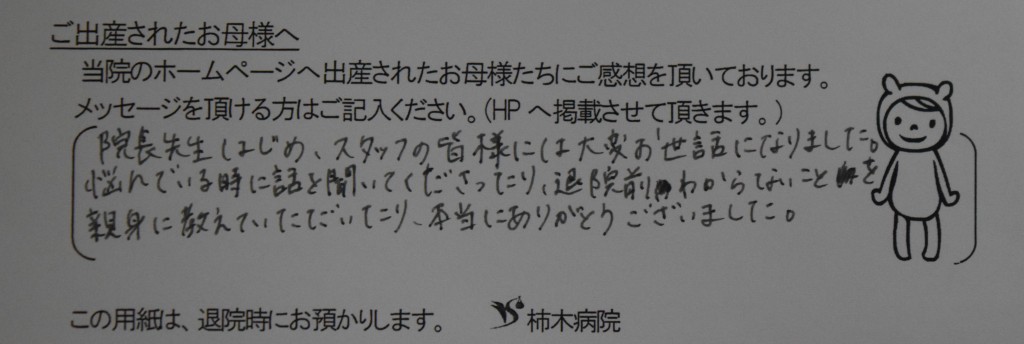 ご出産されたお母様へ
当院のホームページへ出産されたお母様たちにご感想を頂いております。
メッセージを頂ける方はご記入ください。(HP へ掲載させて頂きます。)
院長先生はじめ、スタッフの皆様には大変お世話になりました。
悩んでいる時に話を聞いてくださったり、退院前わからないことを
親身に教えていただいたり、本当にありがとうございました。
この用紙は、退院時にお預かりします。
柿木病院